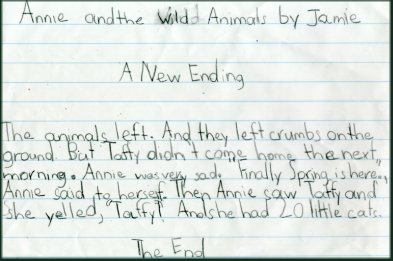 Annie and the Wild Animals by Jamie
A New Ending
The animals left. And they left crumbs on the
ground. But Taffy didn't come home the next
morning. Annie was very sad. "Finally Spring is here.,"
Annie said to hersef. Then Annie saw Taffy and
she yelled, "Taffy!" And she had 20 little cats.
The End